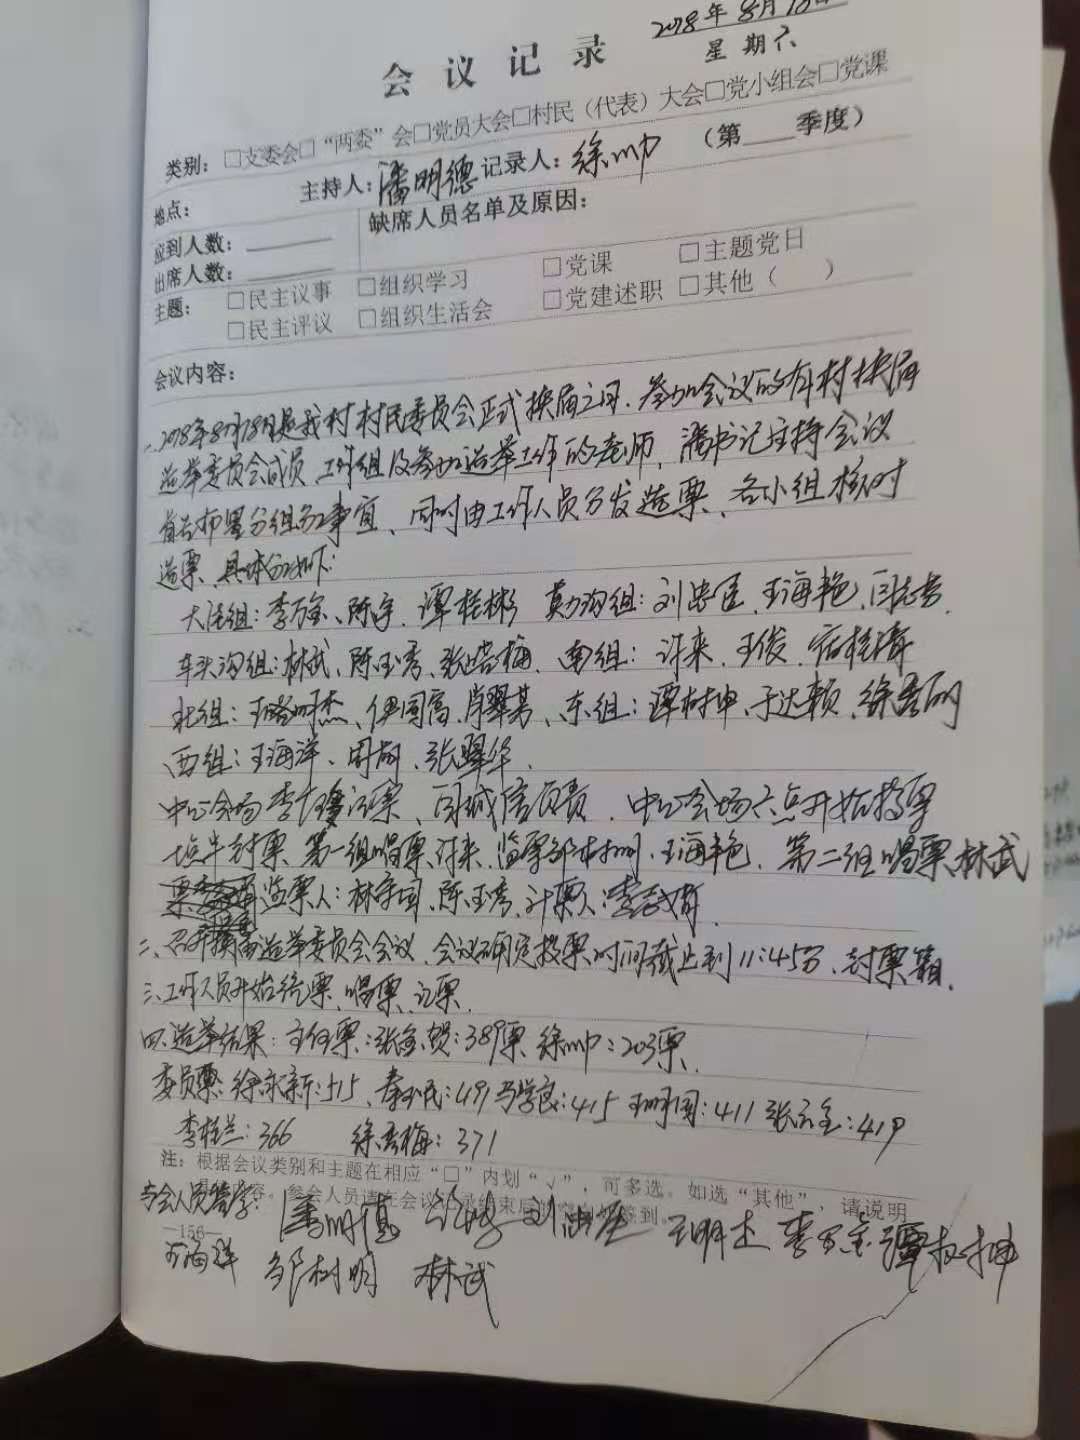 2018年8月18日
星期六
会议记录
类别：□支委会□“两委”会□党员大会□村民（代表）大会□党小组会□党课
主持人：潘明德 记录人：徐帅 （第 季度）
地点：
应到人数： 缺席人员名单及原因：
出席人数：
主题： □民主议事 □组织学习 □党课 □主题党日
□民主评议 □组织生活会 □党建述职 □其他（ ）
会议内容：
一、2018年8月18日是我村村民委员会正式换届之日、参加会议的有村换届
选举委员会成员、工作组及参加选举工作的老师，潘书记主持会议
首先布置分组分工事宜、同时由工作人员分发选票、各小组核对
选票、具体分工如下：
组：李万金、陈宇、谭桂彬 沟组：刘忠臣、王海艳、闫志
车头沟组：林武、陈玉秀、张晓梅、南组：许来、王俊、
北组：王明杰、伊国富、肖翠英、东组：谭树坤、于达赖、徐秀丽
西组：王海洋、周、张翠华、
中心会场李 闫诚信负责、中心会场六点开始投票
第一组唱票许来、监票邹树明、王海艳、第二组唱票林武
监票人：林守国、陈玉秀、计票人：李
二、召开换届选举委员会会议、会议确定投票时间截止到11:45分、封票箱、
三、工作人员开始统票、唱票、记票、
四、选举结果：主任票：张金贺：389票 徐帅：203票
委员票：徐永新：515、秦玉民：419 马学良：415 王明国：411 张云全：419
李桂兰：366 徐秀梅：371
注：根据会议类别和主题在相应“□”内划“√”，可多选。如选“其他”，请说明
内容。参会人员请在会议记录结束后签到。
与会人员签字：潘明德 刘忠臣 王明杰 李万金 谭树坤
—156—
王海洋 邹树明 林武